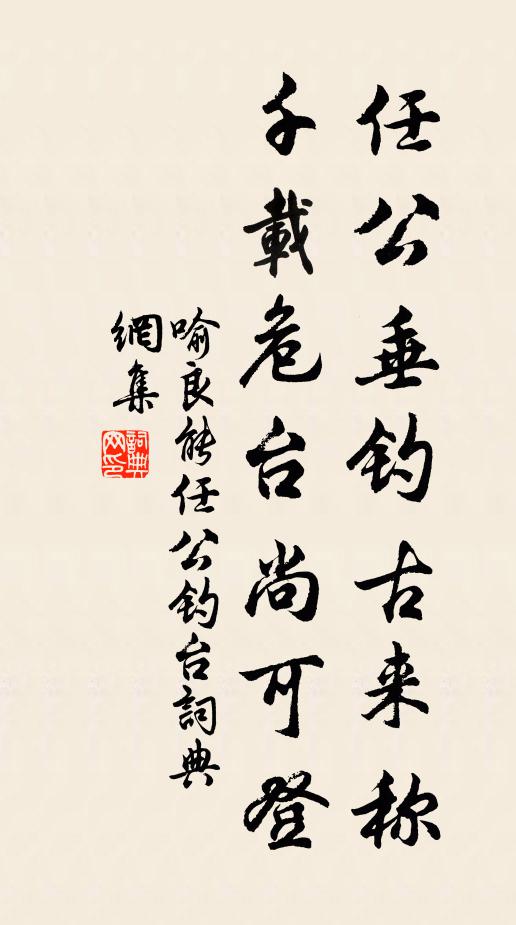 任公垂钓古来称
千載危台尚可登
喻良能任公钓台詞典
網集
詞典
网印